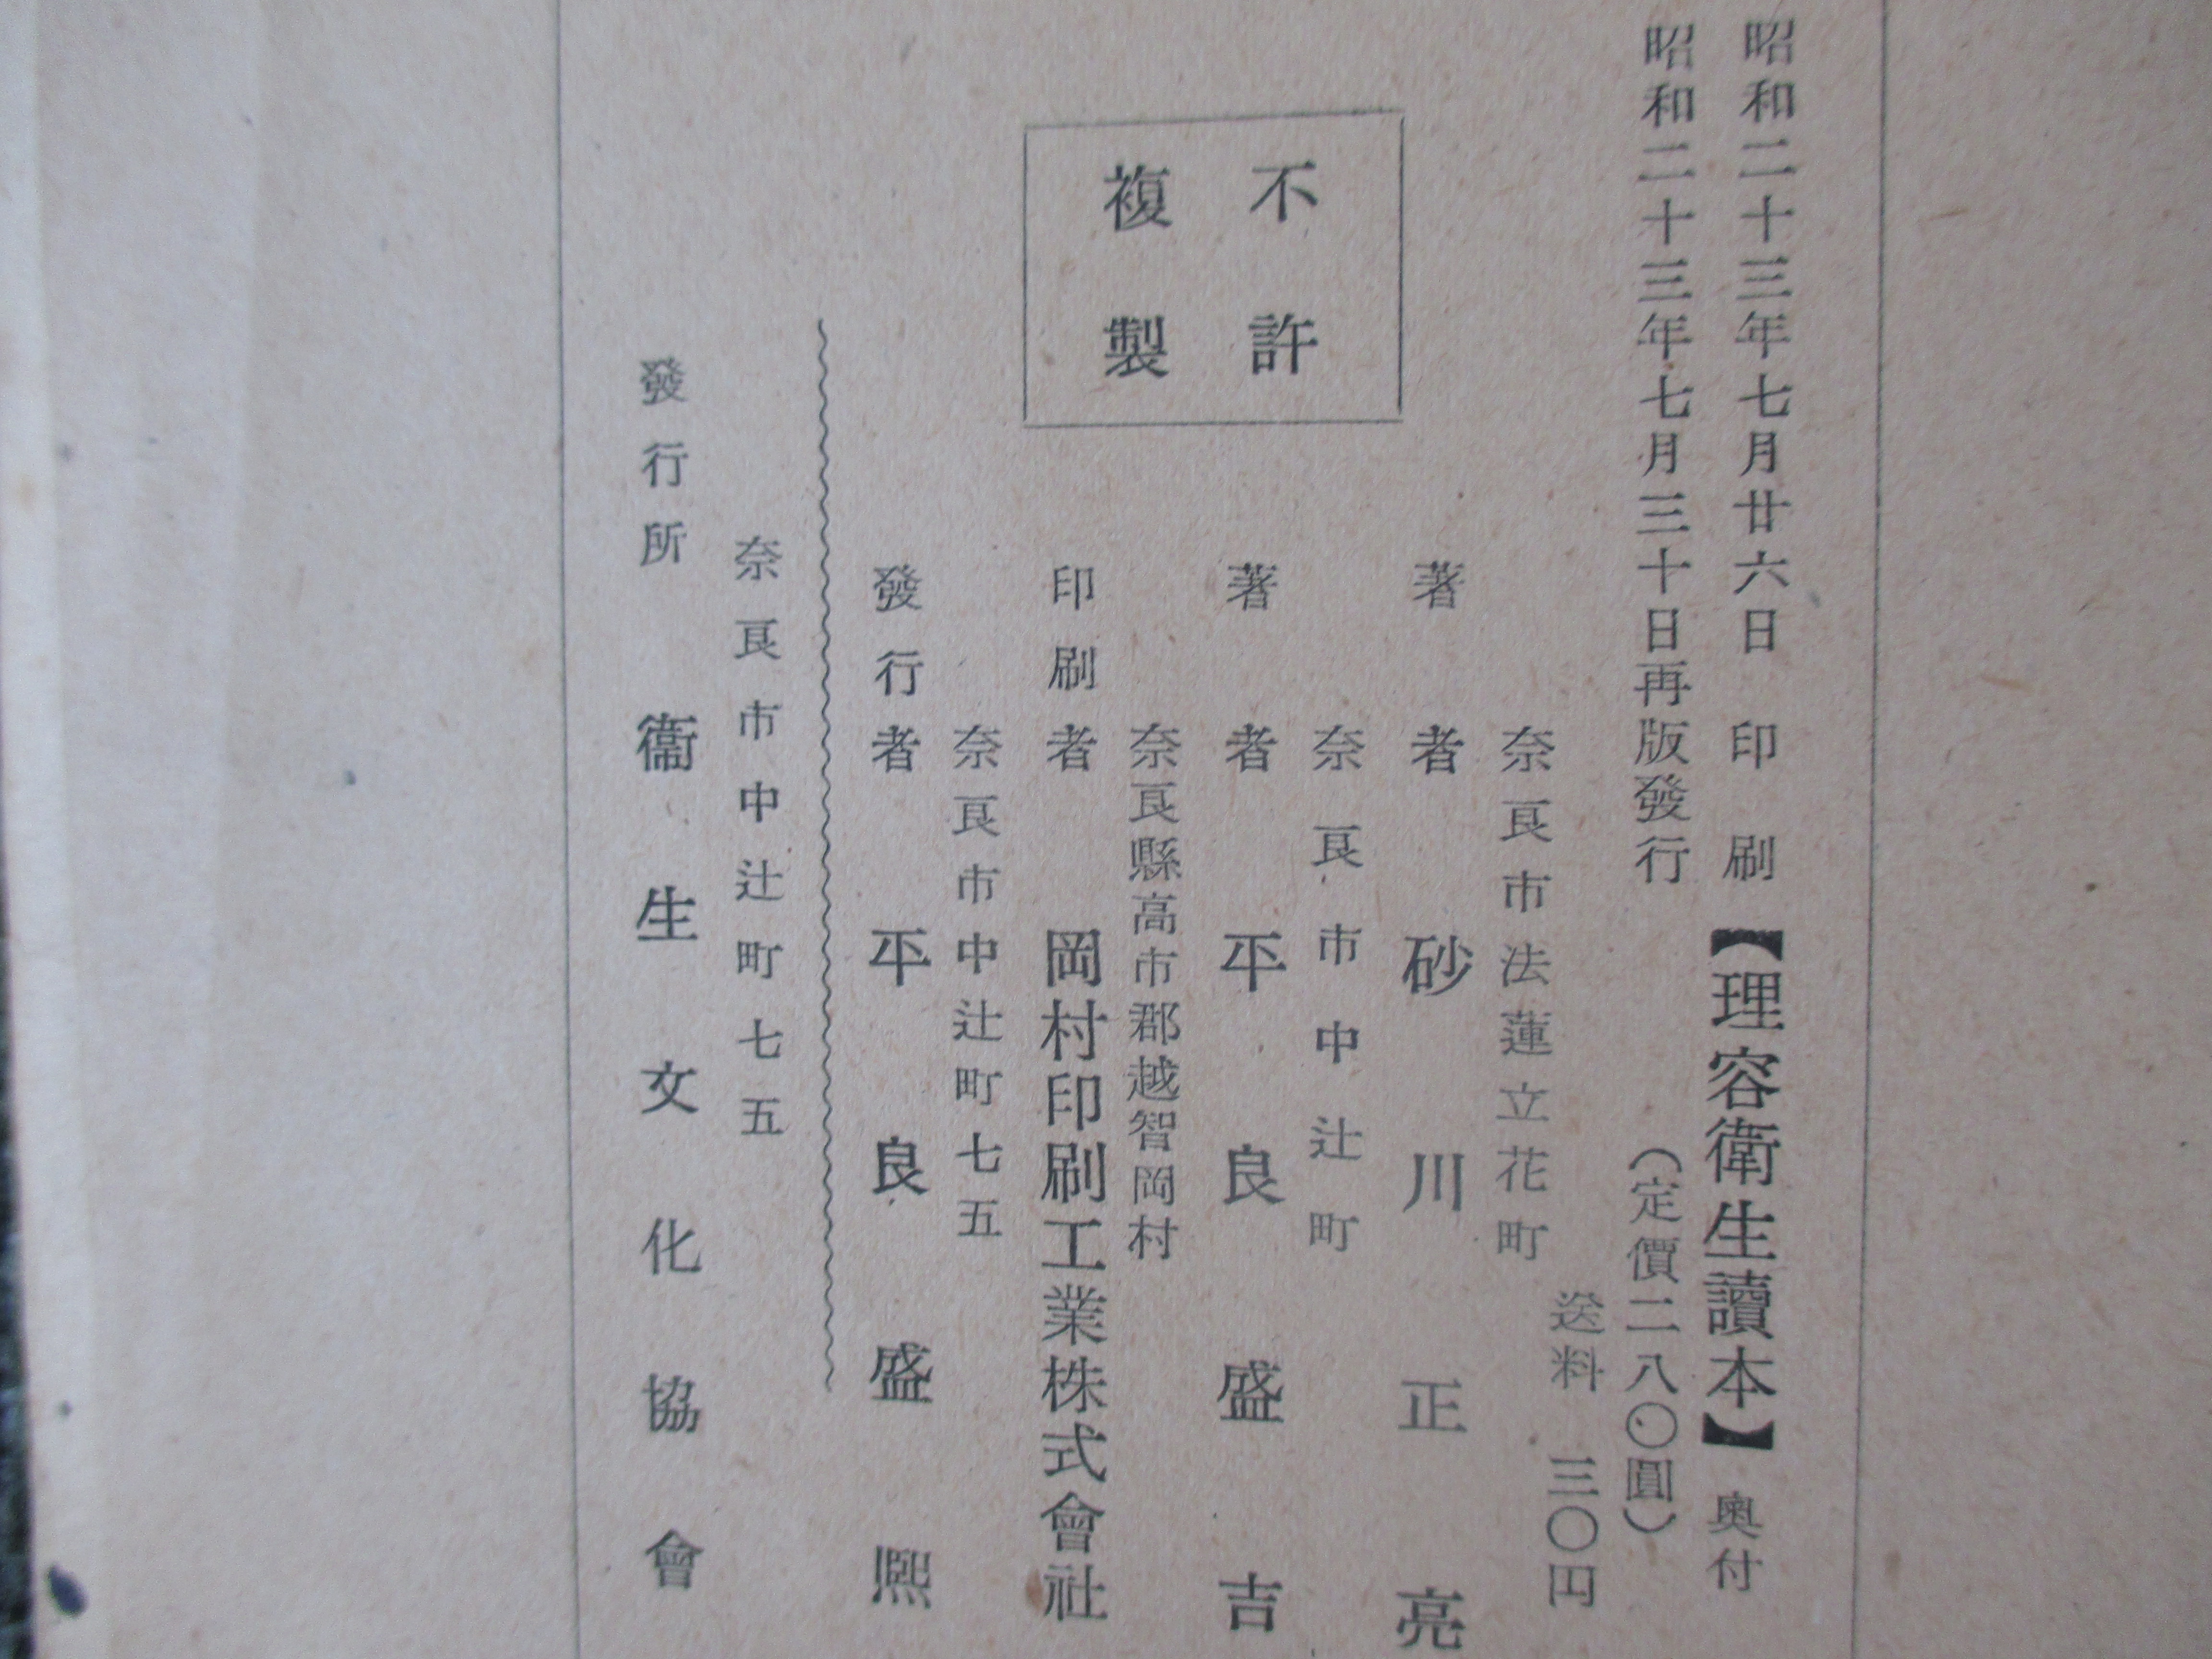 昭和二十三年七月廿六日 印刷 【理容衛生讀本】 奧付
昭和二十三年七月三十日再版發行 (定價二八〇圓)
送料 三〇円
不許
複製
奈良市法蓮立花町
著者 砂川正亮
奈良市中辻町
著者 平良盛吉
奈良縣高市郡越智岡村
印刷者 岡村印刷工業株式會社
奈良市中辻町七五
發行者 平良盛熙
奈良市中辻町七五
發行所 衞生文化協會